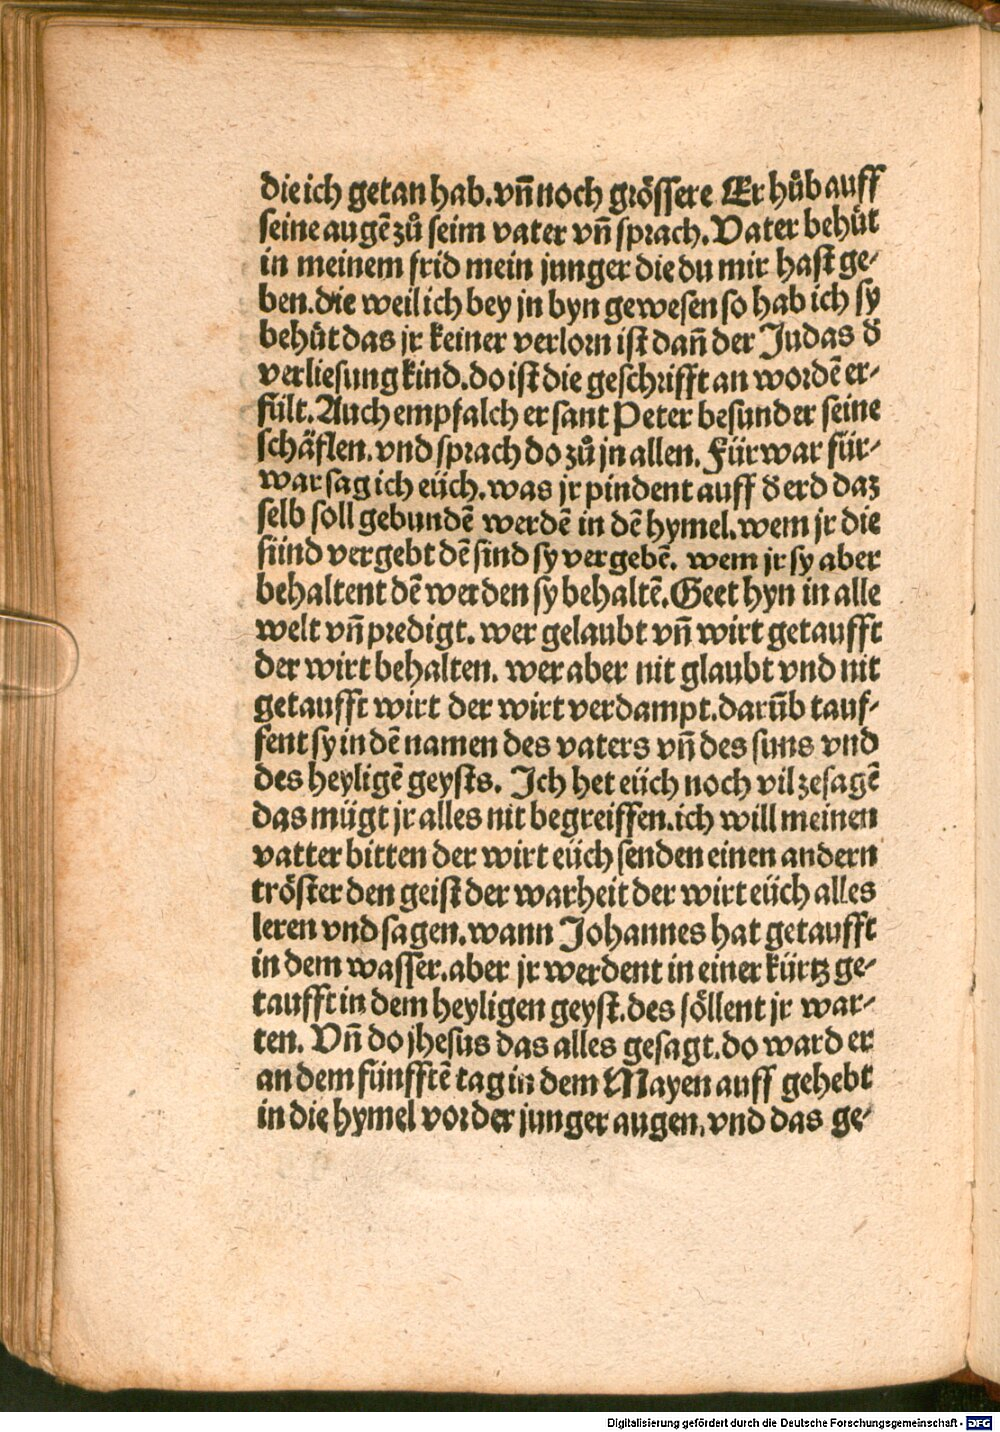 die ich getan hab. vñ noch grössere Er hůb auff
seine augē zů seim vater vñ sprach. Vater behüt
in meinem frid mein junger die du mir hast ge⸗
ben. die weil ich bey jn byn gewesen so hab ich sy
behüt das jr keiner verlorn ist dañ der Judas đ
verliesung kind. do ist die geschrifft an wordē er⸗
fült. Auch empfalch er sant Peter besunder seine
schäflen. vnd sprach do zů jn allen. Fürwar für⸗
war sag ich eüch. was jr pindent auff đ erd daz
selb soll gebundē werdē in dē hymel. wem jr die
sünd vergebt dē sind sy vergebē. wem jr sy aber
behaltent dē werden sy behaltē. Geet hyn in alle
welt vñ predigt. wer gelaubt vñ wirt getaufft
der wirt behalten. wer aber nit glaubt vnd nit
getaufft wirt der wirt verdampt. darūb tauf⸗
fent sy in dē namen des vaters vñ des suns vnd
des heyligē geysts. Ich het eüch noch vil ze sagē
das mügt jr alles nit begreiffen. ich will meinen
vatter bitten der wirt eüch senden einen andern
tröster den geist der warheit der wirt eüch alles
leren vnd sagen. wann Johannes hat getaufft
in dem wasser. aber jr werdent in einer kürtz ge⸗
taufft in dem heyligen geyst. des söllent jr war⸗
ten. Vñ do jhesus das alles gesagt. do ward er
an dem fünfftē tag in dem Mayen auff gehebt
in die hymel vor der junger augen. vnd das ge⸗
Digitalisierung gefördert durch die Deutsche Forschungsgemeinschaft - DFG